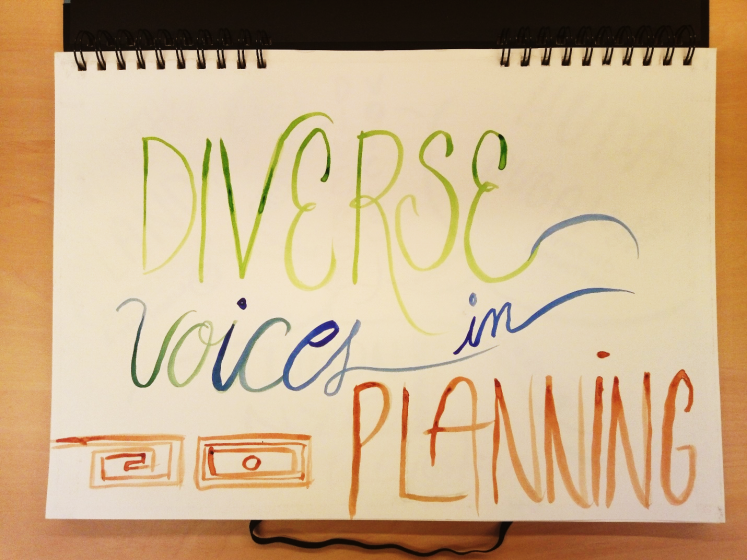 DIVERSE
voices in
PLANNiNG